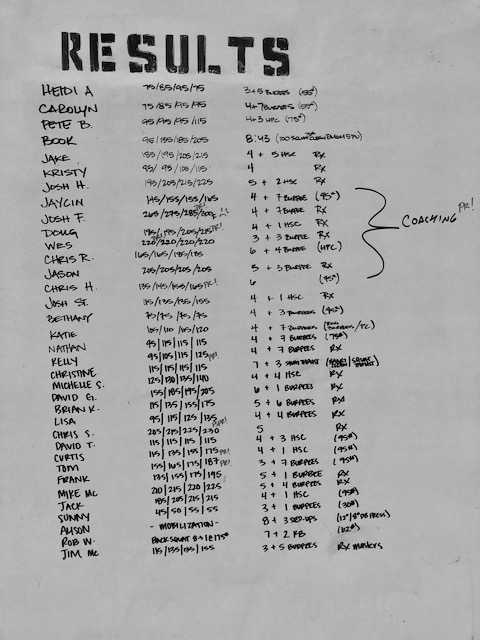 RESULTS
HEIDI A 75/85/95/75 3+5 BURPEES (55#)
CAROLYN 75/85/95/95 4+7 BURPEES (55#)
PETE B. 95/95/95/115 4+3 HPC (75#)
BOOK 95/135/185/205 8:43
JAKE 185/195/205/215 4 + 5 HSC RX
KRISTY 95/95/105/115 4 RX
JOSH H. 195/205/215/225 5 + 2 HSC RX
JAYCIN 145/155/155/165 4 + 7 BURPEES (95#)
JOSH F. 265/275/285/300 4 + 7 BURPEE RX
DOUG 205/215 PR! 4 + 1 HSC RX
WES 220/220/220/220 3 + 3 BURPEE RX
CHRIS R. 165/165/185/195 6 + 4 BURPEE (HPC)
COACHING PR!
JASON 205/205/205/205 5 + 3 BURPEE RX
CHRIS H. 135/145/155/165 PR! 6 (95#)
JOSH ST. 115/135/135/155 4 + 1 HSC RX
BETHANY 75/75/75/75 4 + 3 BURPEES (45#)
KATIE 105/110/115/120 4 + 7 BURPEES
NATHAN 95/115/115/115 4 + 7 BURPEES (75#)
KELLY 95/105/115/125 PR! 4 + 7 BURPEES RX
CHRISTINE 115/115/115/115 7 + 3
MICHELLE S. 125/130/135/140 4 + 4 HSC RX
DAVID G. 155/185/195/205 6 + 1 BURPEES RX
BRIAN K. 115/135/155/175 5 + 6 BURPEES RX
LISA 95/115/125/135 4 + 4 BURPEES RX
CHRIS S. 205/215/225/230 PR! 5 RX
DAVID T. 115/115/115/115 4 + 3 HSC (95#)
CURTIS 115/135/155/175 PR! 4 + 1 HSC (95#)
TOM 155/165/175/187 PR! 3 + 7 BURPEES (95#)
FRANK 135/155/175/195 5 + 1 BURPEE RX
MIKE MC 210/215/220/225 5 + 4 BURPEES RX
JACK 185/205/215/215 4 + 1 HSC (95#)
SUNNY 45/50/55/55 3 + 1 BURPEES (30#)
ALISON - MOBILIZATION - 8 + 3 STEP-UPS
ROB W. BACK SQUAT 7 + 2 KB
JIM MC 115/135/135/155 3 + 5 BURPEES RX MASTERS